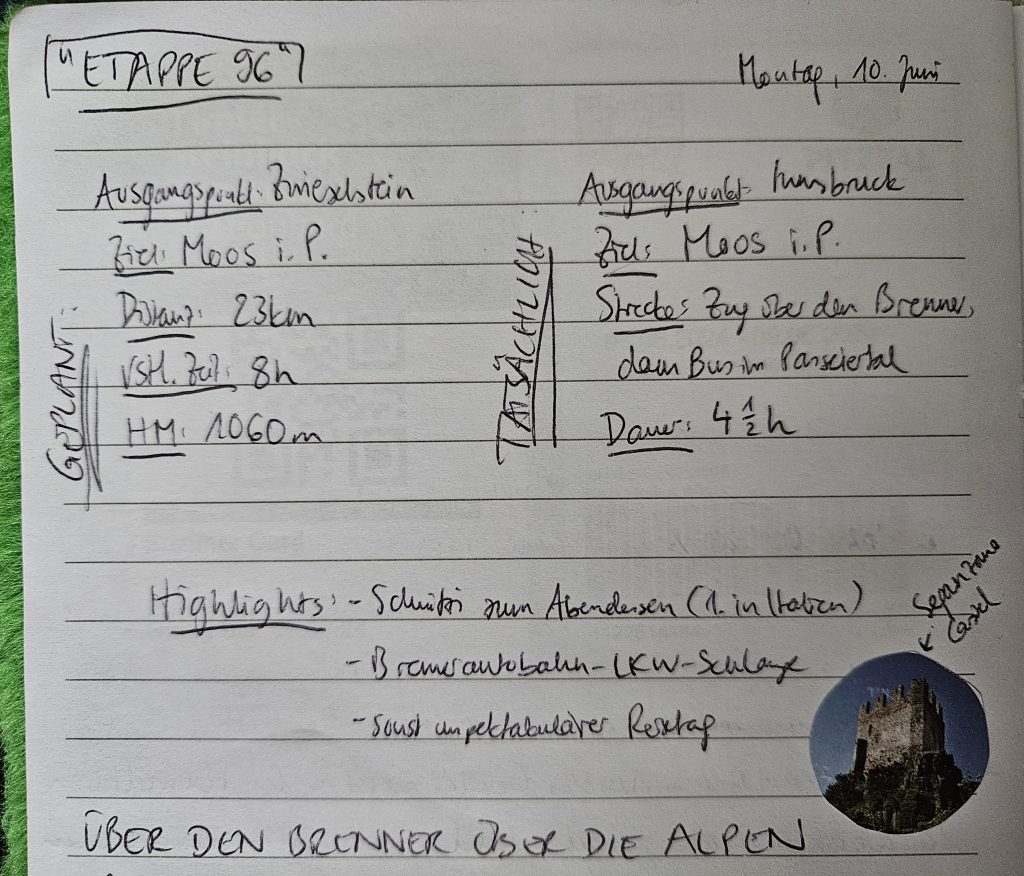 "ETAPPE 96"
Montag, 10. Juni
GEPLANT:
Ausgangspunkt: Zwieselstein
Ziel: Moos i. P.
Distanz: 23km
Vstl. Zeit: 8h
HM: 1060m
TATSÄCHLICH
Ausgangspunkt: Innsbruck
Ziel: Moos i. P.
Strecke: Zug über den Brenner,
dann Bus im Passeiertal
Dauer: 4 ½ h
Highlights: - Schnitzi zum Abendessen (1. in Italien)
- Brennerautobahn-LKW-Schlange
- Sonst unspektakulärer Reisetag
Segonzano
Castel
ÜBER DEN BRENNER ÜBER DIE ALPEN